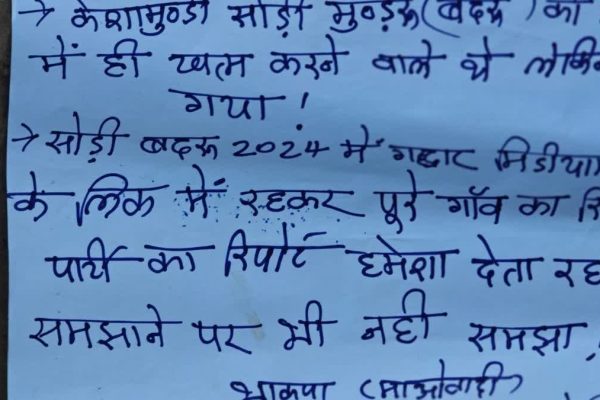 → केशामुण्डी सोड़ी मुण्ड़रू (बदरू) का
में ही खत्म करने वाले थे लेकिन
गया!
→ सोड़ी बदरू 2024 में गद्दार मिडीया
के लिंक में रहकर पूरे गाँव का रि
पार्टी का रिपोर्ट हमेशा देता रह
समझाने पर भी नही समझा,
भाकपा (माओवादी)